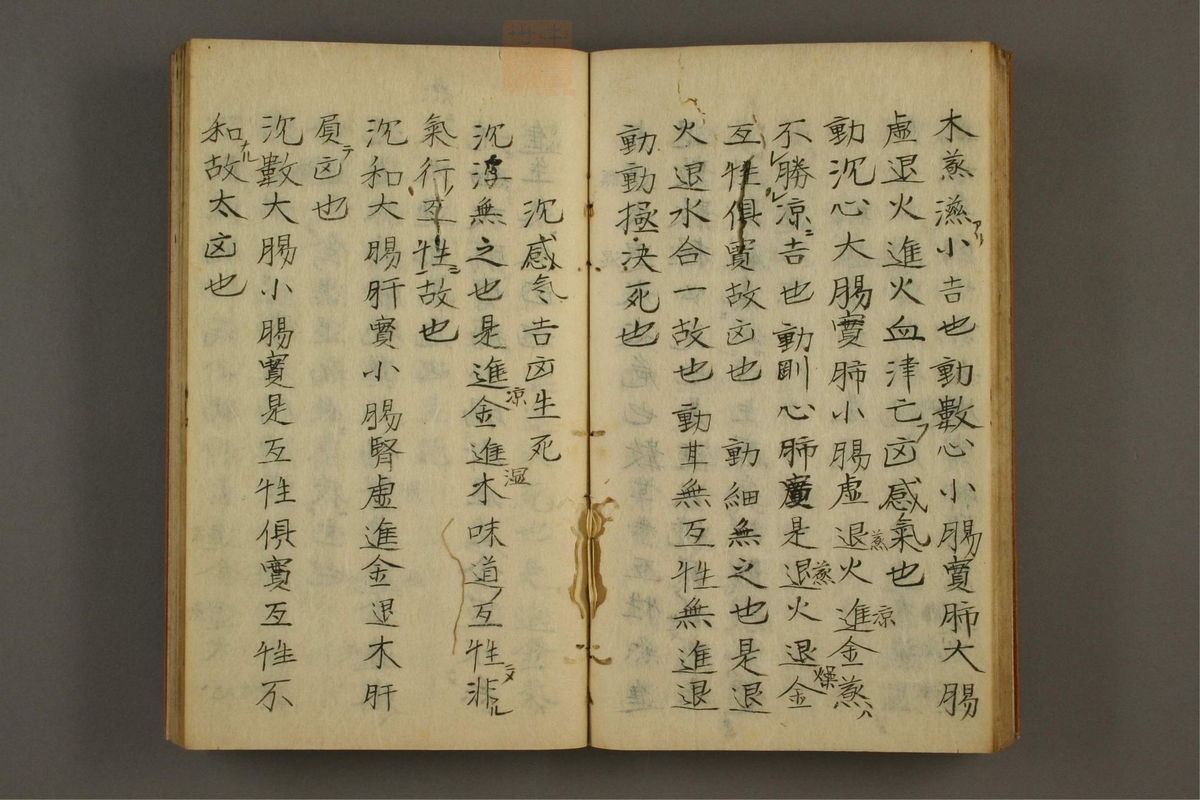 木蒸濕小吉也動數心小腸實肺大腸
虛退火進火血津亡凶感氣也
動沉心大腸實肺小腸虛退火進金蒸ハ
不勝涼吉也動剛心肺實是退火退金
互性俱實故凶也動細無之也是退
火退水合一故也動芤無互性無進退
動動極決死也
沉感氣吉凶生死
沉浮無之也是進金進木味道互性非
氣行互性故也
沉和大腸肝實小腸腎虛進金退木肝
負テ凶也
沉數大腸小腸實是互性俱實互性不
和故太凶也